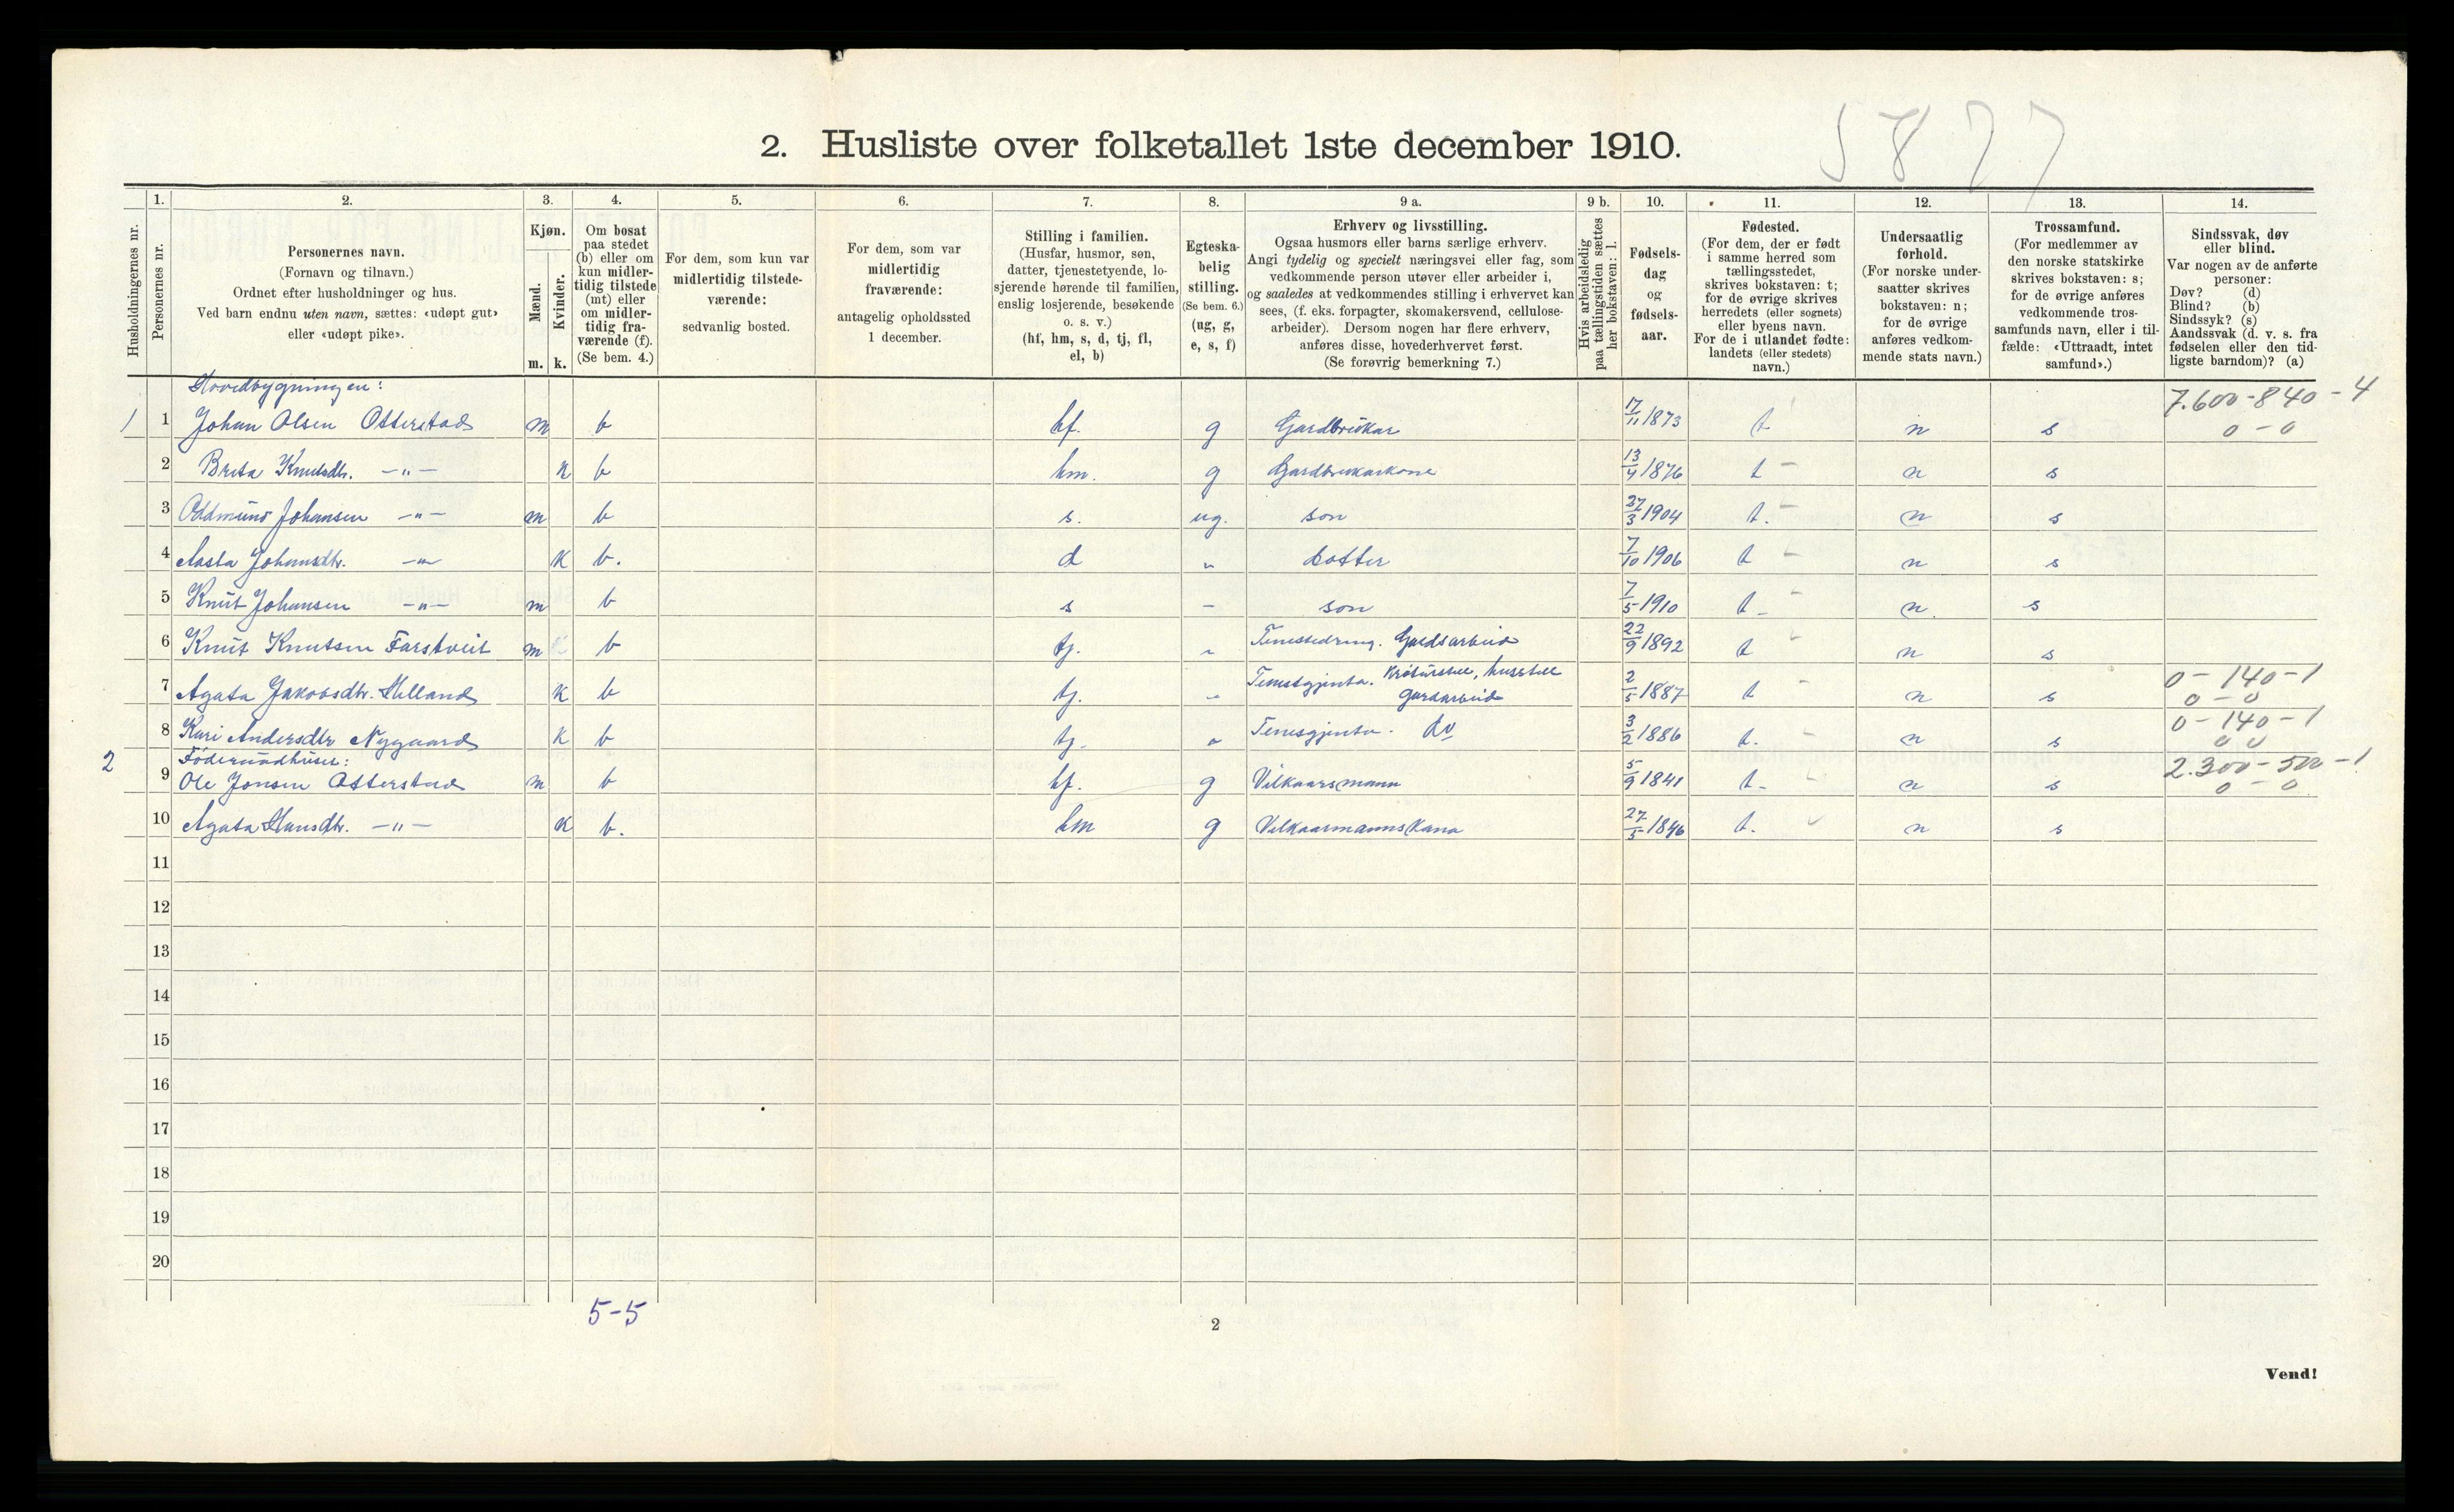 5877
2. Husliste over folketallet 1ste december 1910.
Husholdningernes nr.
1.
Personernes nr.
2.
Personernes navn.
(Fornavn og tilnavn.)
Ordnet efter husholdninger og hus.
Ved barn endnu uten navn, sættes: «udøpt gut»
eller «udøpt pike».
3.
Kjøn.
Mænd.
m.
Kvinder.
k.
4.
Om bosat
paa stedet
(b) eller om
kun midler-
tidig tilstede
(mt) eller
om midler-
tidig fra-
værende (f).
(Se bem. 4.)
5.
For dem, som kun var
midlertidig tilstede-
værende:
sedvanlig bosted.
6.
For dem, som var
midlertidig
fraværende:
antagelig opholdssted
1 december.
7.
Stilling i familien.
(Husfar, husmor, søn,
datter, tjenestetyende, lo-
sjerende hørende til familien,
enslig losjerende, besøkende
o. s. v.)
(hf, hm, s, d, tj, fl,
el, b)
8.
Egteska-
belig
stilling.
(Se bem. 6.)
(ug, g,
e, s, f)
9 a.
Erhverv og livsstilling.
Ogsaa husmors eller barns særlige erhverv.
Angi tydelig og specielt næringsvei eller fag, som
vedkommende person utøver eller arbeider i,
og saaledes at vedkommendes stilling i erhvervet kan
sees, (f. eks. forpagter, skomakersvend, cellulose-
arbeider). Dersom nogen har flere erhverv,
anføres disse, hovederhvervet først.
(Se forøvrig bemerkning 7.)
9 b.
Hvis arbeidsledig
paa tællingstiden sættes
her bokstaven: l.
10.
Fødsels-
dag
og
fødsels-
aar.
11.
Fødested.
(For dem, der er født
i samme herred som
tællingsstedet,
skrives bokstaven: t;
for de øvrige skrives
herredets (eller sognets)
eller byens navn.
For de i utlandet fødte:
landets (eller stedets)
navn.)
12.
Undersaatlig
forhold.
(For norske under-
saatter skrives
bokstaven: n;
for de øvrige
anføres vedkom-
mende stats navn.)
13.
Trossamfund.
(For medlemmer av
den norske statskirke
skrives bokstaven: s;
for de øvrige anføres
vedkommende tros-
samfunds navn, eller i til-
fælde: «Uttraadt, intet
samfund».)
14.
Sindssvak, døv
eller blind.
Var nogen av de anførte
personer:
Døv? (d)
Blind? (b)
Sindssyk? (s)
Aandssvak (d. v. s. fra
fødselen eller den tid-
ligste barndom)? (a)
Hovedbygningen:
7.600-840-4
1 1 Johan Olsen Otterstad m b hf. g Gardbrukar 17/11 1873 t n s 0-0
2 Brita Knutsdtr. -"- k b hm. g Gardbrukarkone 13/4 1876 t n s
3 Oddmund Johansen -"- m b s. ug. son 27/3 1904 t. n s
4 Aasta Johansdtr. -"- k b. d " dotter 7/10 1906 t n s
5 Knut Johansen -"- m b s - son 7/5 1910 t n. s
6 Knut Knutsen Farstveit m b tj. " Tenestedreng. Gardsarbeid 22/9 1892 t n s
Krøturstell, husstell 0-140-1
7 Agata Jakobsdtr. Helland k b tj. " Tenestgjenta. Gardarbeid 2/5 1887 t n s 0-0
0-140-1
8 Kari Andersdtr Nygaard k b tj. " Tenesgjenta. do 3/2 1886 t. n s 0 0
2 Føderaadhuset: 2.300-500-1
9 Ole Jonsen Otterstad m b hf. g Vilkaarsmann 5/9 1841 t n s 0-0
10 Agata Hansdtr. -"- k b. hm g Vilkaarmannskana 27/5 1846 t. n s
11
12
13
14
15
16
17
18
19
20
5-5
2
Vend!